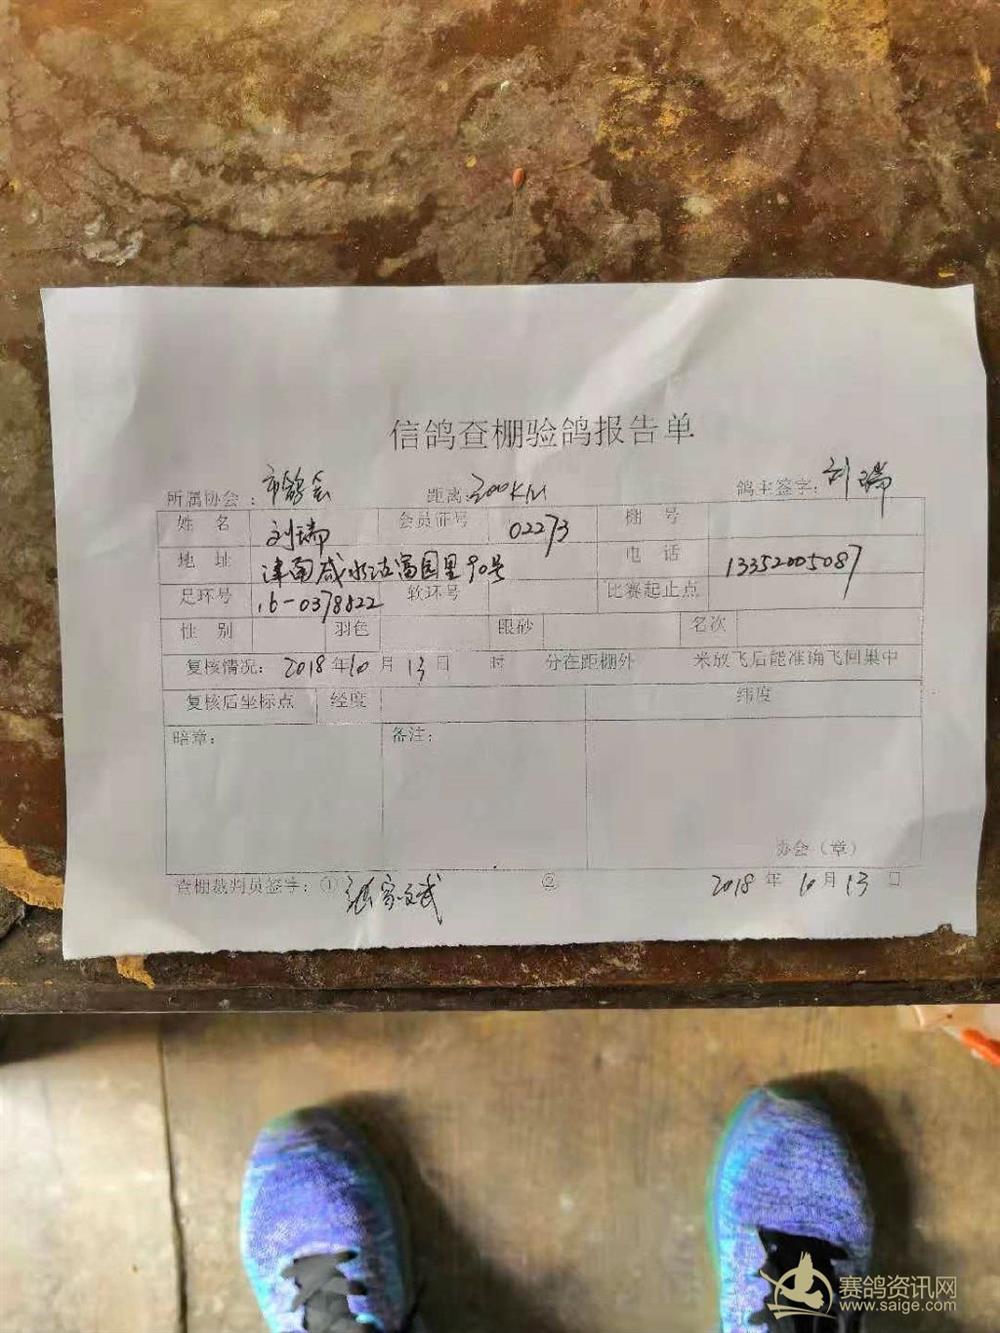 信鸽查棚验鸽报告单
所属协会：市鸽会 距离：200KM 鸽主签字：刘瑞
姓 名 刘瑞 会员证号 02273 棚 号
地 址 津南咸水沽富园里90号 电 话 13352005087
足环号 16-0378822 软环号 比赛起止点
性 别 羽色 眼砂 名次
复核情况：2018年10月13日 时 分在距棚外 米放飞后能准确飞回巢中
复核后坐标点 经度 纬度
暗章： 备注：
协会（章）
查棚裁判员签字：① 张家斌 ② 2018年10月13日
赛鸽资讯网
www.saige.com